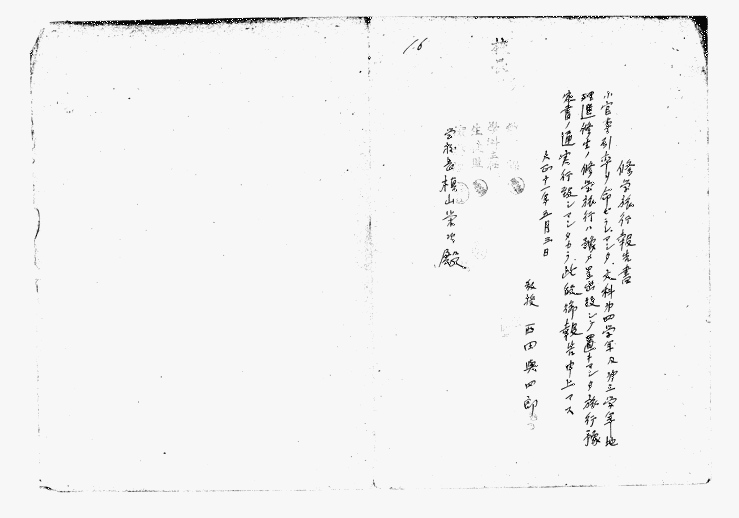 修学旅行報告書
小官事引率ヲ命ゼラレマシタ、文科第四学年及第三学年地
理選修生ノ修学旅行ハ豫メ呈出致シテ置キマシタ旅行豫
定書ノ通実行致シマシタカラ、此段御報告申上マス
大正十一年五月三日
教授 西田與四郎
学校長槇山榮次殿
16
校長